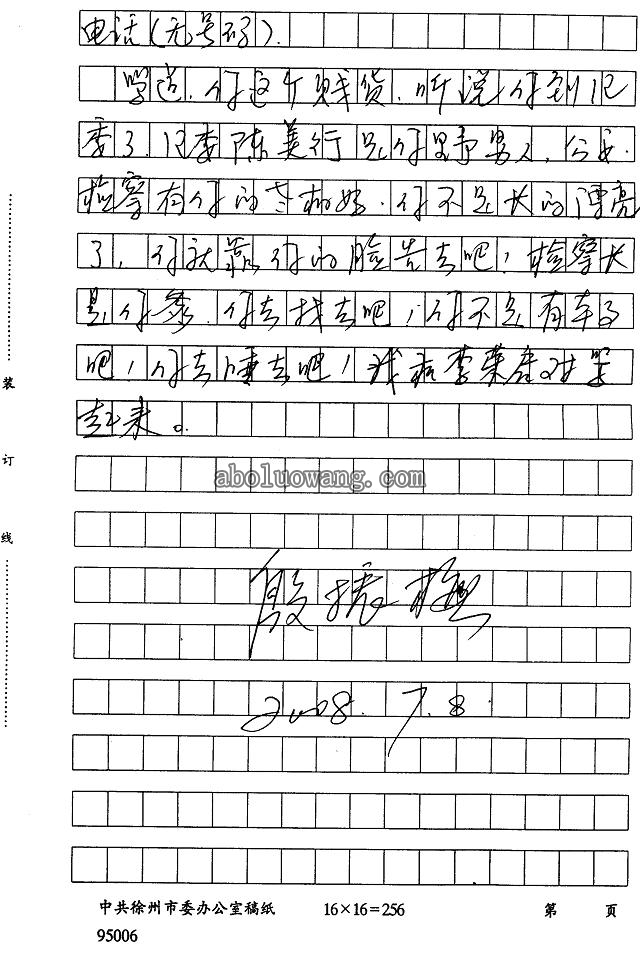 电话(无号码).
学道.你这个贱货.听说你到纪
委了.纪委陈美行是你野男人,公安
检察有你的老相好.你不是长的漂亮
了,你就靠你的脸告去吧!检察长
是你爹.你去找去吧!你不是有车子
吧!你去睡去吧!我和李
起来。
aboluowang.com
殷振
2008.7.8
装
订
线
中共徐州市委办公室稿纸 16×16=256 第 页
95006